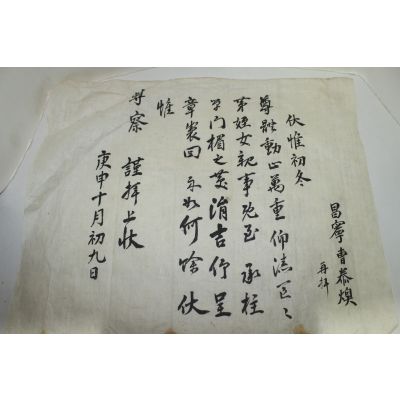 昌寧曺泰 再拜
伏惟初冬
尊體動止萬重仰溸區〻
第姪女親事旣至 承柱
單門楣之慶涓吉伻呈
章製回示如何餘伏
惟
尊察 謹拜上狀
庚申十月初九日